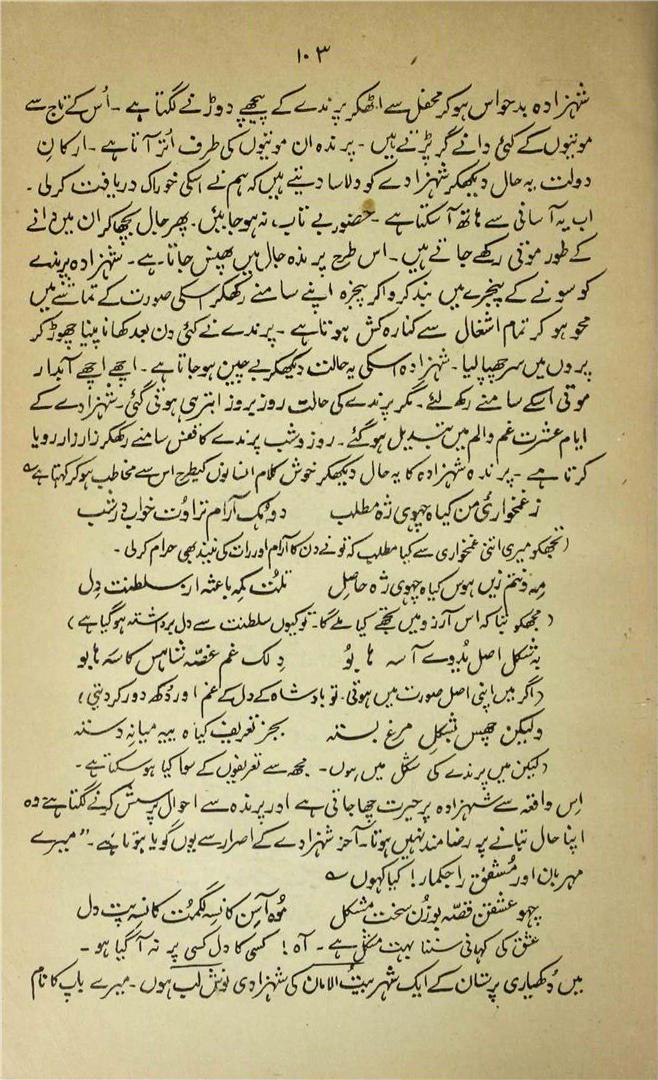 ۱۰۳
شہزادہ بدحواس ہوکر محفل سے اٹھکر پرندے کے پیچھے دوڑنے لگتا ہے ۔ اُس کے تاج سے
موتیوں کے کئی دانے گر پڑتے ہیں ۔ پرندہ ان موتیوں کی طرف اُتر آتا ہے ۔ ارکانِ
دولت یہ حال دیکھکر شہزادے کو دلاسا دیتے ہیں کہ ہم نے اسکی خوراک دریافت کرلی ۔
اب یہ آسانی سے ہاتھ آسکتا ہے ۔ حضور بے تاب نہ ہوجائیں ۔ پھر جال بچھاکر ان میں دانے
کے طور موتی رکھے جاتے ہیں ۔ اس طرح پرندہ جال میں پھنس جاتا ہے ۔ شہزادہ پرندے
کو سونے کے پنجرے میں بند کرواکر پنجرہ اپنے سامنے رکھکر اسکی صورت کے تماشے میں
محو ہوکر تمام اشغال سے کنارہ کش ہوتا ہے ۔ پرندے نے کئی دن بعد کھانا پینا چھوڑ کر
پروں میں سر چھپا لیا ۔ شہزادہ اسکی یہ حالت دیکھکر بے چین ہوجاتا ہے ۔ اچھے اچھے آبدار
موتی اسکے سامنے رکھ لئے ۔ مگر پرندے کی حالت روز بروز ابتر ہی ہوتی گئی ۔ شہزادے کے
ایام عشرت غم والم میں تبدیل ہوگئے ۔ روز و شب پرندے کا قفس سامنے رکھکر زار زار رویا
کرتا ہے ۔ پرندہ شہزادہ کا یہ حال دیکھکر خوش کلام انسانوں کیطرح اس سے مخاطب ہوکر کہتا ہے
ز غمخواریٔ من کیاہ چہوی ژہ مطلب دوہک آرام تراوُت خواب در شب
(تجھکو میری اتنی غمخواری سے کیا مطلب کہ تو نے دن کا آرام اور رات کی نیند بھی حرام کرلی ۔
مِہ دنتم زیں ہوس کیاہ چہوی ژہ حاصل تلُت کمہ باعثہ از سلطنت دِل
(مجھکو بتا کہ اس آرزو میں تجھے کیا ملے گا ۔ تو کیوں سلطنت سے دل برداشتہ ہوگیا ہے)
بہ شکل اصل بُدوے آسہ ہا بوُ دِلک غم غصّہ شاہس کاسہ ہا بو
(اگر میں اپنی اصل صورت میں ہوتی ۔ تو بادشاہ کے دل کے غم اور دُکھ دور کردیتی)
ولیکن چھس بشکل مرغ بستہ بجز تعریف کیاہ ییہ میانہ دستہ
(لیکن میں پرندے کی شکل میں ہوں ۔ مجھ سے تعریفوں کے سوا کیا ہوسکتا ہے ۔
اِس واقعہ سے شہزادہ پر حیرت چھا جاتی ہے اور پرندہ سے احوال پرسش کرنے لگتا ہے وہ
اپنا حال بتانے پر رضامند نہیں ہوتا ۔ آخر شہزادے کے اصرار سے یوں گویا ہوتا ہے ۔ "میرے
مہربان اور مُشفق راجکمار! کیا کہوں
چہو عشقن قصّہ بوزُن سخت مشکل مُوہ آسن کانسہ لگمُت کانسہ پیٹ دل
عشق کی کہانی سننا بہت مشکل ہے ۔ آہ! کسی کا دل کسی پر نہ آگیا ہو ۔
میں دُکھیاری پرستان کے ایک شہر بیتُ الامان کی شہزادی نوش لب ہوں ۔ میرے باپ کا نام